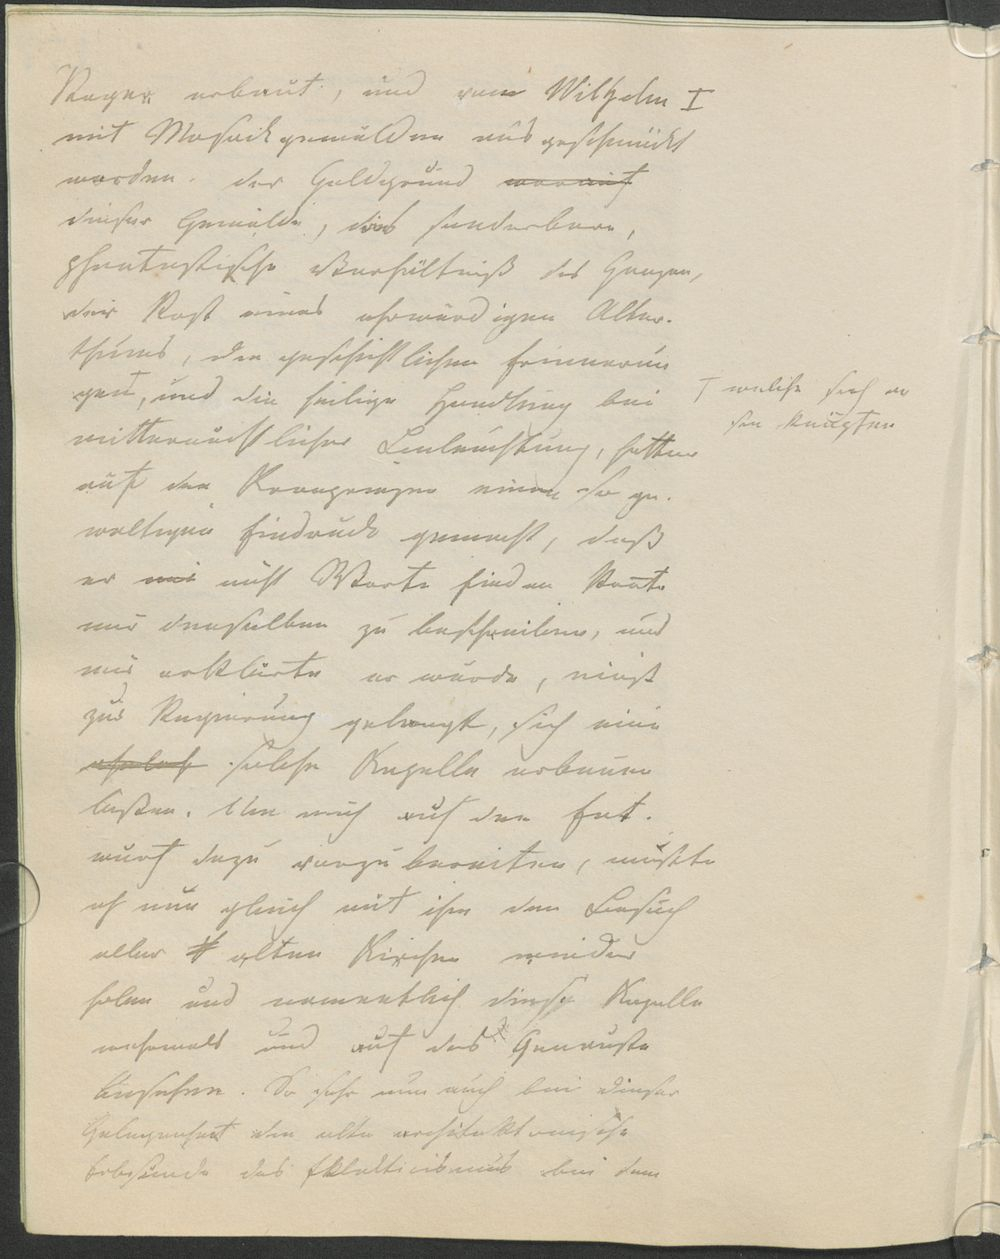 Roger erbaut, und von Wilhelm I
mit Mosaikgemälden ausgeschmückt
worden. Der Goldgrund worauf
dieser Gemälde, das sonderbare,
phantastische Verhältniß des Ganzen,
der Rost eines ehrwürdigen Alter-
thums, die geschichtlichen Erinnerun
gen, und die heilige Handlung bei
T welche sich an
sie knüpften
mitternächtlicher Beleuchtung, hatten
auf den Kronprinzen einen so ge-
waltigen Eindruck gemacht, daß
er nicht Worte finden konnte
mir denselben zu beschreiben, und
mir erklärte er würde, einst
zur Regierung gelangt, sich eine
solche Kapelle erbauen
laßen. Um mich auf den Ent-
wurf dazu vorzubereiten, mußte
ich nun gleich mit ihm den Besuch
aller alten Kirchen wieder
holen und namentlich diese Kapelle
mehrmals und auf das Genauste
besehen. So sehr nun auch bei dieser
Gelegenheit die alte architektonische
Erbsünde des Eklekticismus bei dem